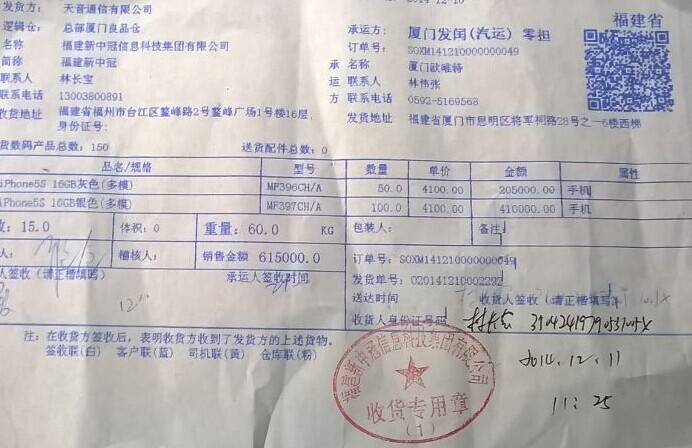 发货方： 天音通信有限公司 2014-12-10
逻辑仓： 总部厦门良品仓 承运方： 厦门发闽(汽运) 零担 福建省
名 称 福建新中冠信息科技集团有限公司 订单号： SOXM141210000000049
简称 福建新中冠 承 名称 厦门欧唯特
联系人 林长宝 运 联系人 林伟张
联系电话 13003800891 方 联系电话 0592-5169568
收货地址 福建省福州市台江区鳌峰路2号鳌峰广场1号楼16层， 发货地址 福建省厦门市思明区将军祠路28号之一6楼西梯
身份证号：
货数码产品总数：150 送货配件总数：0
品名/规格 型号 数量 单价 金额 属性
iPhone5S 16GB灰色(多模) MF396CH/A 50.0 4100.00 205000.00 手机
iPhone5S 16GB银色(多模) MF397CH/A 100.0 4100.00 410000.00 手机
：15.0 体积：0 重量：60.0 KG 包装人： 备注
人： 稽核人： 销售金额 615000.0 订单号：SOXM141210000000049
人签收（请正楷填写） 承运人签收时间 发货单号：020141210002292
12 送达时间 收货人签收（请正楷填写）
收货人身份证号码
注：在收货方签收后，表明收货方收到了发货方的上述货物。
签收联(白) 客户联(蓝) 司机联(黄) 仓库联(粉)
福建新中冠信息科技集团有限公司
收货专用章
(1)
2014.12.11
11：25